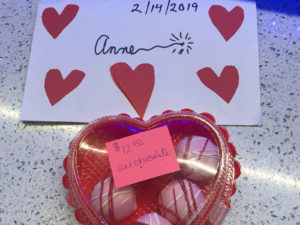 2/14/2019
Anne
$12.00
all chocolate